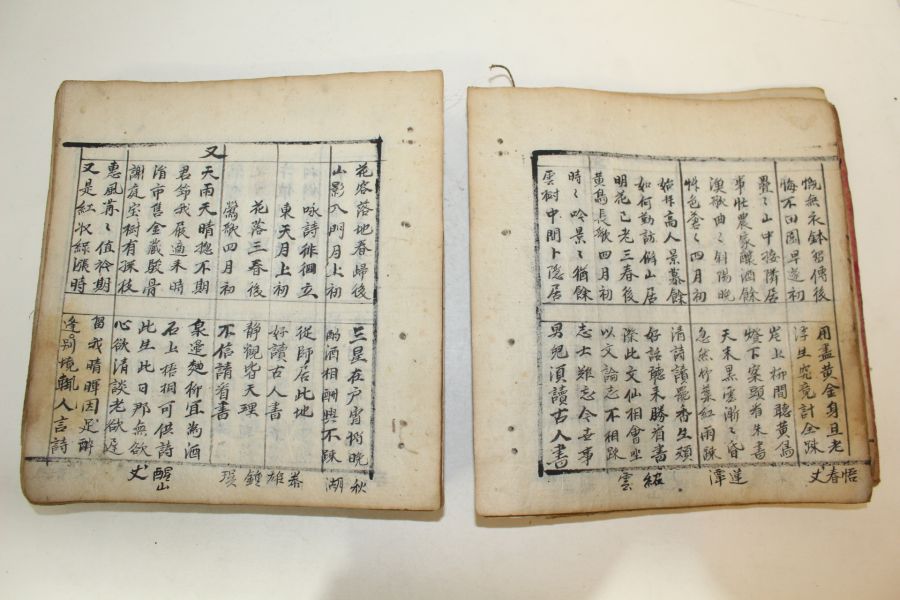 無衣鉢習傳後
用盡黃金身且老
悔不田園早遂初
浮生究竟計全踈
疊々山中接隣居
岸上柳間聽黃
事忙農家釀酒餘
燈下案頭有朱書
漁歌曲々斜陽晩
天末黑雲漸々昏
色蒼々四月初
忽然竹葉紅雨踈
始拜高人景慕餘
清詩讀罷香生頰
如何勤訪僻山居
好話聽來勝看書
明花已老三春後
際此文仙相會坐
黃鳥長歌四月初
以文論志不相踈
時々吟景々猶餘
志士難忘今古事
雲樹中間卜隱居
男兒須讀古人書
悟春丈
蓮潭
紹雲
花落地春歸後
三星在戶宵將晩
山影入門月上初
酌酒相酬興不踈
詠詩徘徊立
從師居此地
東天月上初
好讀古人書
花落三春後
靜觀皆天理
鶯歌四月初
不信請看書
又
天雨天晴揔不期
泉邊麯柳宜爲酒
君節我屐適來時
石上梧桐可供詩
市售金藏駿骨
此生此日那無欲
謝庭宝樹有探枝
心欲清談老欲遲
惠風々值衿期
留我晴暉因足醉
又是紅收綠漲時
逢別境輒人言詩
秋湖
泰雄
鎮瑛
醒山丈